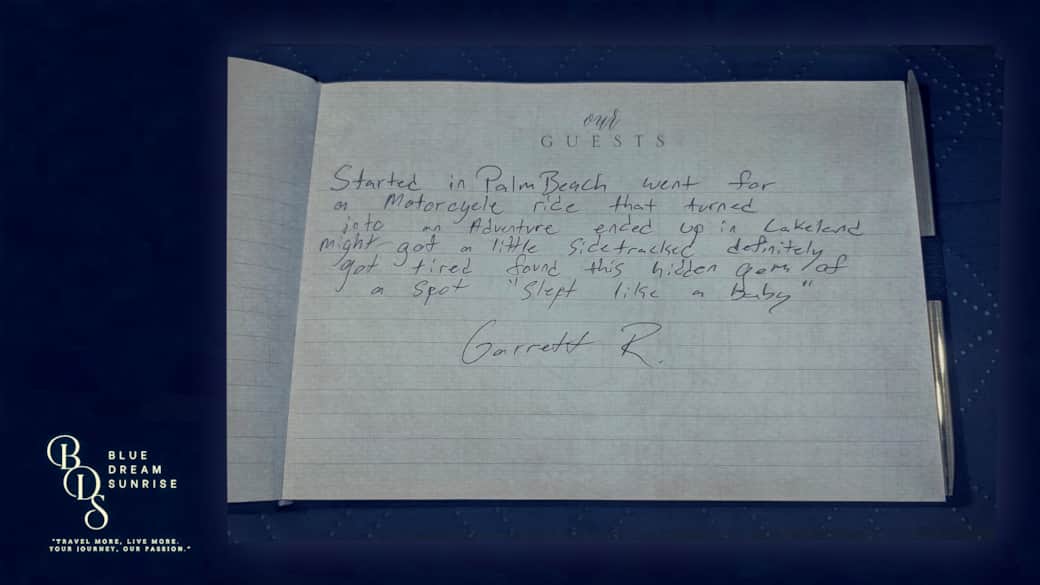 our
GUESTS
Started in Palm Beach went for
a Motorcycle ride that turned
into an Adventure ended up in Lakeland
might got a little sidetracked definitely
got tired found this hidden gem of
a spot "slept like a baby"
Garrett R.
BDS
BLUE
DREAM
SUNRISE
"TRAVEL MORE, LIVE MORE.
YOUR JOURNEY, OUR PASSION."